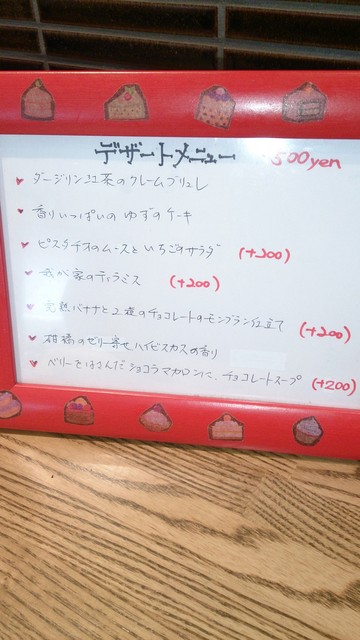 デザートメニュー 500yen
ダージリン紅茶のクレームブリュレ
香りいっぱいの ゆずのケーキ
ピスタチオのムースといちごのサラダ (+200)
我が家のティラミス (+200)
完熟バナナと2種のチョコレートのモンブラン仕立て (+200)
柑橘のゼリー寄せハイビスカスの香り
ベリーをはさんだショコラマカロンに、チョコレートスープ (+200)